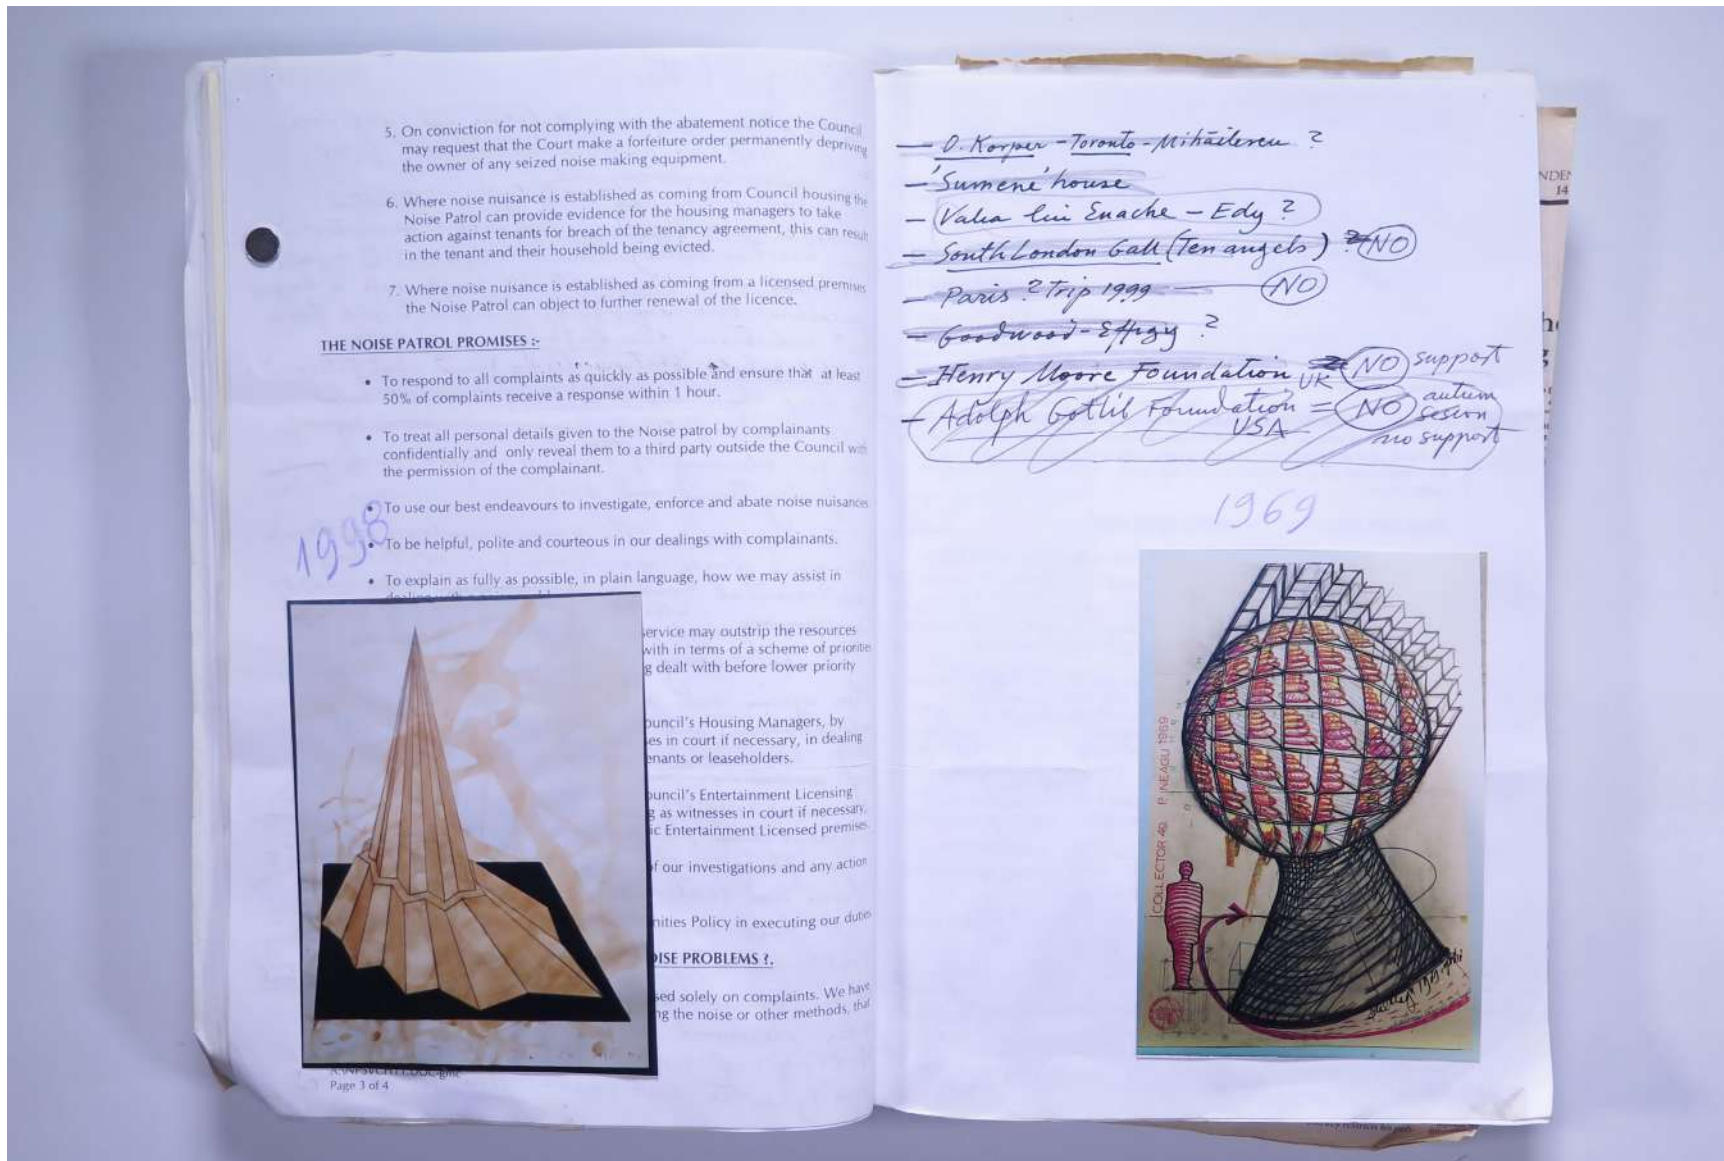 5. On conviction for not complying with the abatement notice the Council
may request that the Court make a forfeiture order permanently depriving
the owner of any seized noise making equipment.
6. Where noise nuisance is established as coming from Council housing the
Noise Patrol can provide evidence for the housing managers to take
action against tenants for breach of the tenancy agreement, this can result
in the tenant and their household being evicted.
7. Where noise nuisance is established as coming from a licensed premises
the Noise Patrol can object to further renewal of the licence.
THE NOISE PATROL PROMISES :-
• To respond to all complaints as quickly as possible and ensure that at least
50% of complaints receive a response within 1 hour.
• To treat all personal details given to the Noise patrol by complainants
confidentially and only reveal them to a third party outside the Council with
the permission of the complainant.
• To use our best endeavours to investigate, enforce and abate noise nuisances
1998
• To be helpful, polite and courteous in our dealings with complainants.
• To explain as fully as possible, in plain language, how we may assist in
ervice may outstrip the resources
with in terms of a scheme of priorities
g dealt with before lower priority
ouncil's Housing Managers, by
es in court if necessary, in dealing
enants or leaseholders.
ouncil's Entertainment Licensing
g as witnesses in court if necessary,
ic Entertainment Licensed premises.
of our investigations and any action
nities Policy in executing our duties
OISE PROBLEMS ?.
sed solely on complaints. We have
ng the noise or other methods, that
Page 3 of 4
— O. Korper - Toronto - Mihăilescu ?
— 'Sumene' house
— Valea lui Enache - Edy ?
— South London Gall (Ten angels) ? NO
— Paris ? Trip 1999 — NO
— Goodwood - Effigy ?
— Henry Moore Foundation UK NO support
— Adolph Gotlib Foundation USA = NO autum
sesion
no support
1969
COLLECTOR 40. P. NEAGU 1969
NDEN
14